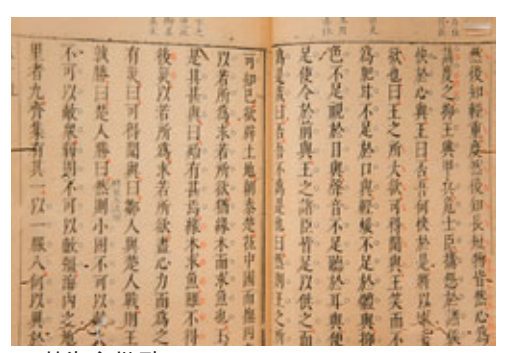 然後知輕重度然後知長短物皆然心爲
度之抑王興甲兵危士臣構怨於諸侯
快於心與王曰否吾何快於是將以求
欲也曰王之所大欲可得聞與王笑而不
爲肥甘不足於口與輕煖不足於體與抑
色不足視於目與聲音不足聽於耳與便
足使令於前與王之諸臣皆足以供之而
爲是哉曰否吾不爲是也曰然則王之所
可知已欲辟土地朝秦楚莅中國而撫四
以若所爲求若所欲猶緣木而求魚也王
是其甚與曰殆有甚焉緣木求魚雖不得
後災以若所爲求若所欲盡心力而爲之
有災曰可得聞與曰鄒人與楚人戰則王
孰勝曰楚人勝曰然則小固不可以敵
不可以敵衆弱固不可以敵彊海內之
者九齊集有其一以一服八何以異於